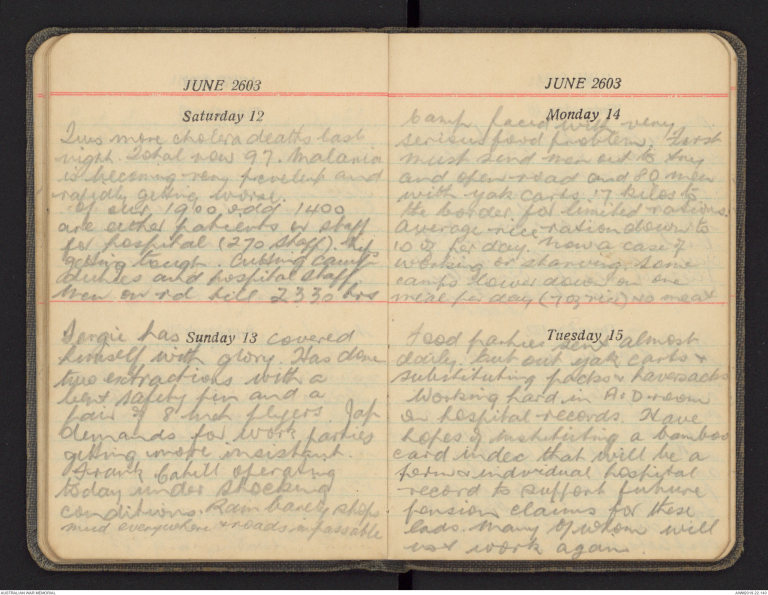 JUNE 2603
Saturday 12
Two more cholera deaths last
night. Total now 97. Malaria
is becoming very prevelent and
rapidly getting worse.
Of our 1900 odd 1400
are either patients or staff
for hospital (270 staff).
getting tough. Cutting camp
duties and hospital staff
Men on rd till 2330 hrs
Sunday 13
has covered
himself with glory. Has done
two extractions with a
bent safety pin and a
pair of 8 inch plyers. Jap
demands for work parties
getting more insistant.
Frank Cahill operating
today under shocking
conditions. Rain barely stops
mud everywhere & roads impassable
JUNE 2603
Monday 14
Camp faced with very
serious food problem. First
must send men out to try
and open road and 80 men
with yak carts 17 kilos to
the border for limited rations.
Average rice ration down to
10 oz per day. Now a case of
working or starving. Some
camps lower down on one
meal per day (7 oz rice) no meat
Tuesday 15
Food parties sent almost
daily. Cut out yak carts &
substituting packs & haversacks
Working hard in A & D room
on hospital records. Have
hopes of instituting a bamboo
card index that will be a
perm & individual hospital
record to support future
pension claims for these
lads. Many of whom will
not work again.
AUSTRALIAN WAR MEMORIAL